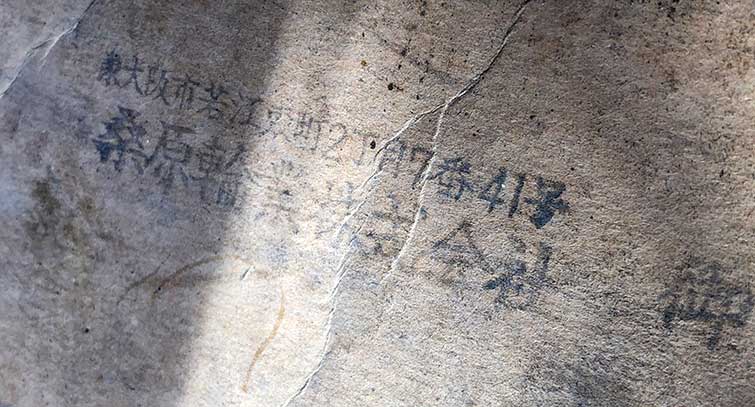 東大阪市若江東町2丁目7番41号
桑原輪業株式会社 御